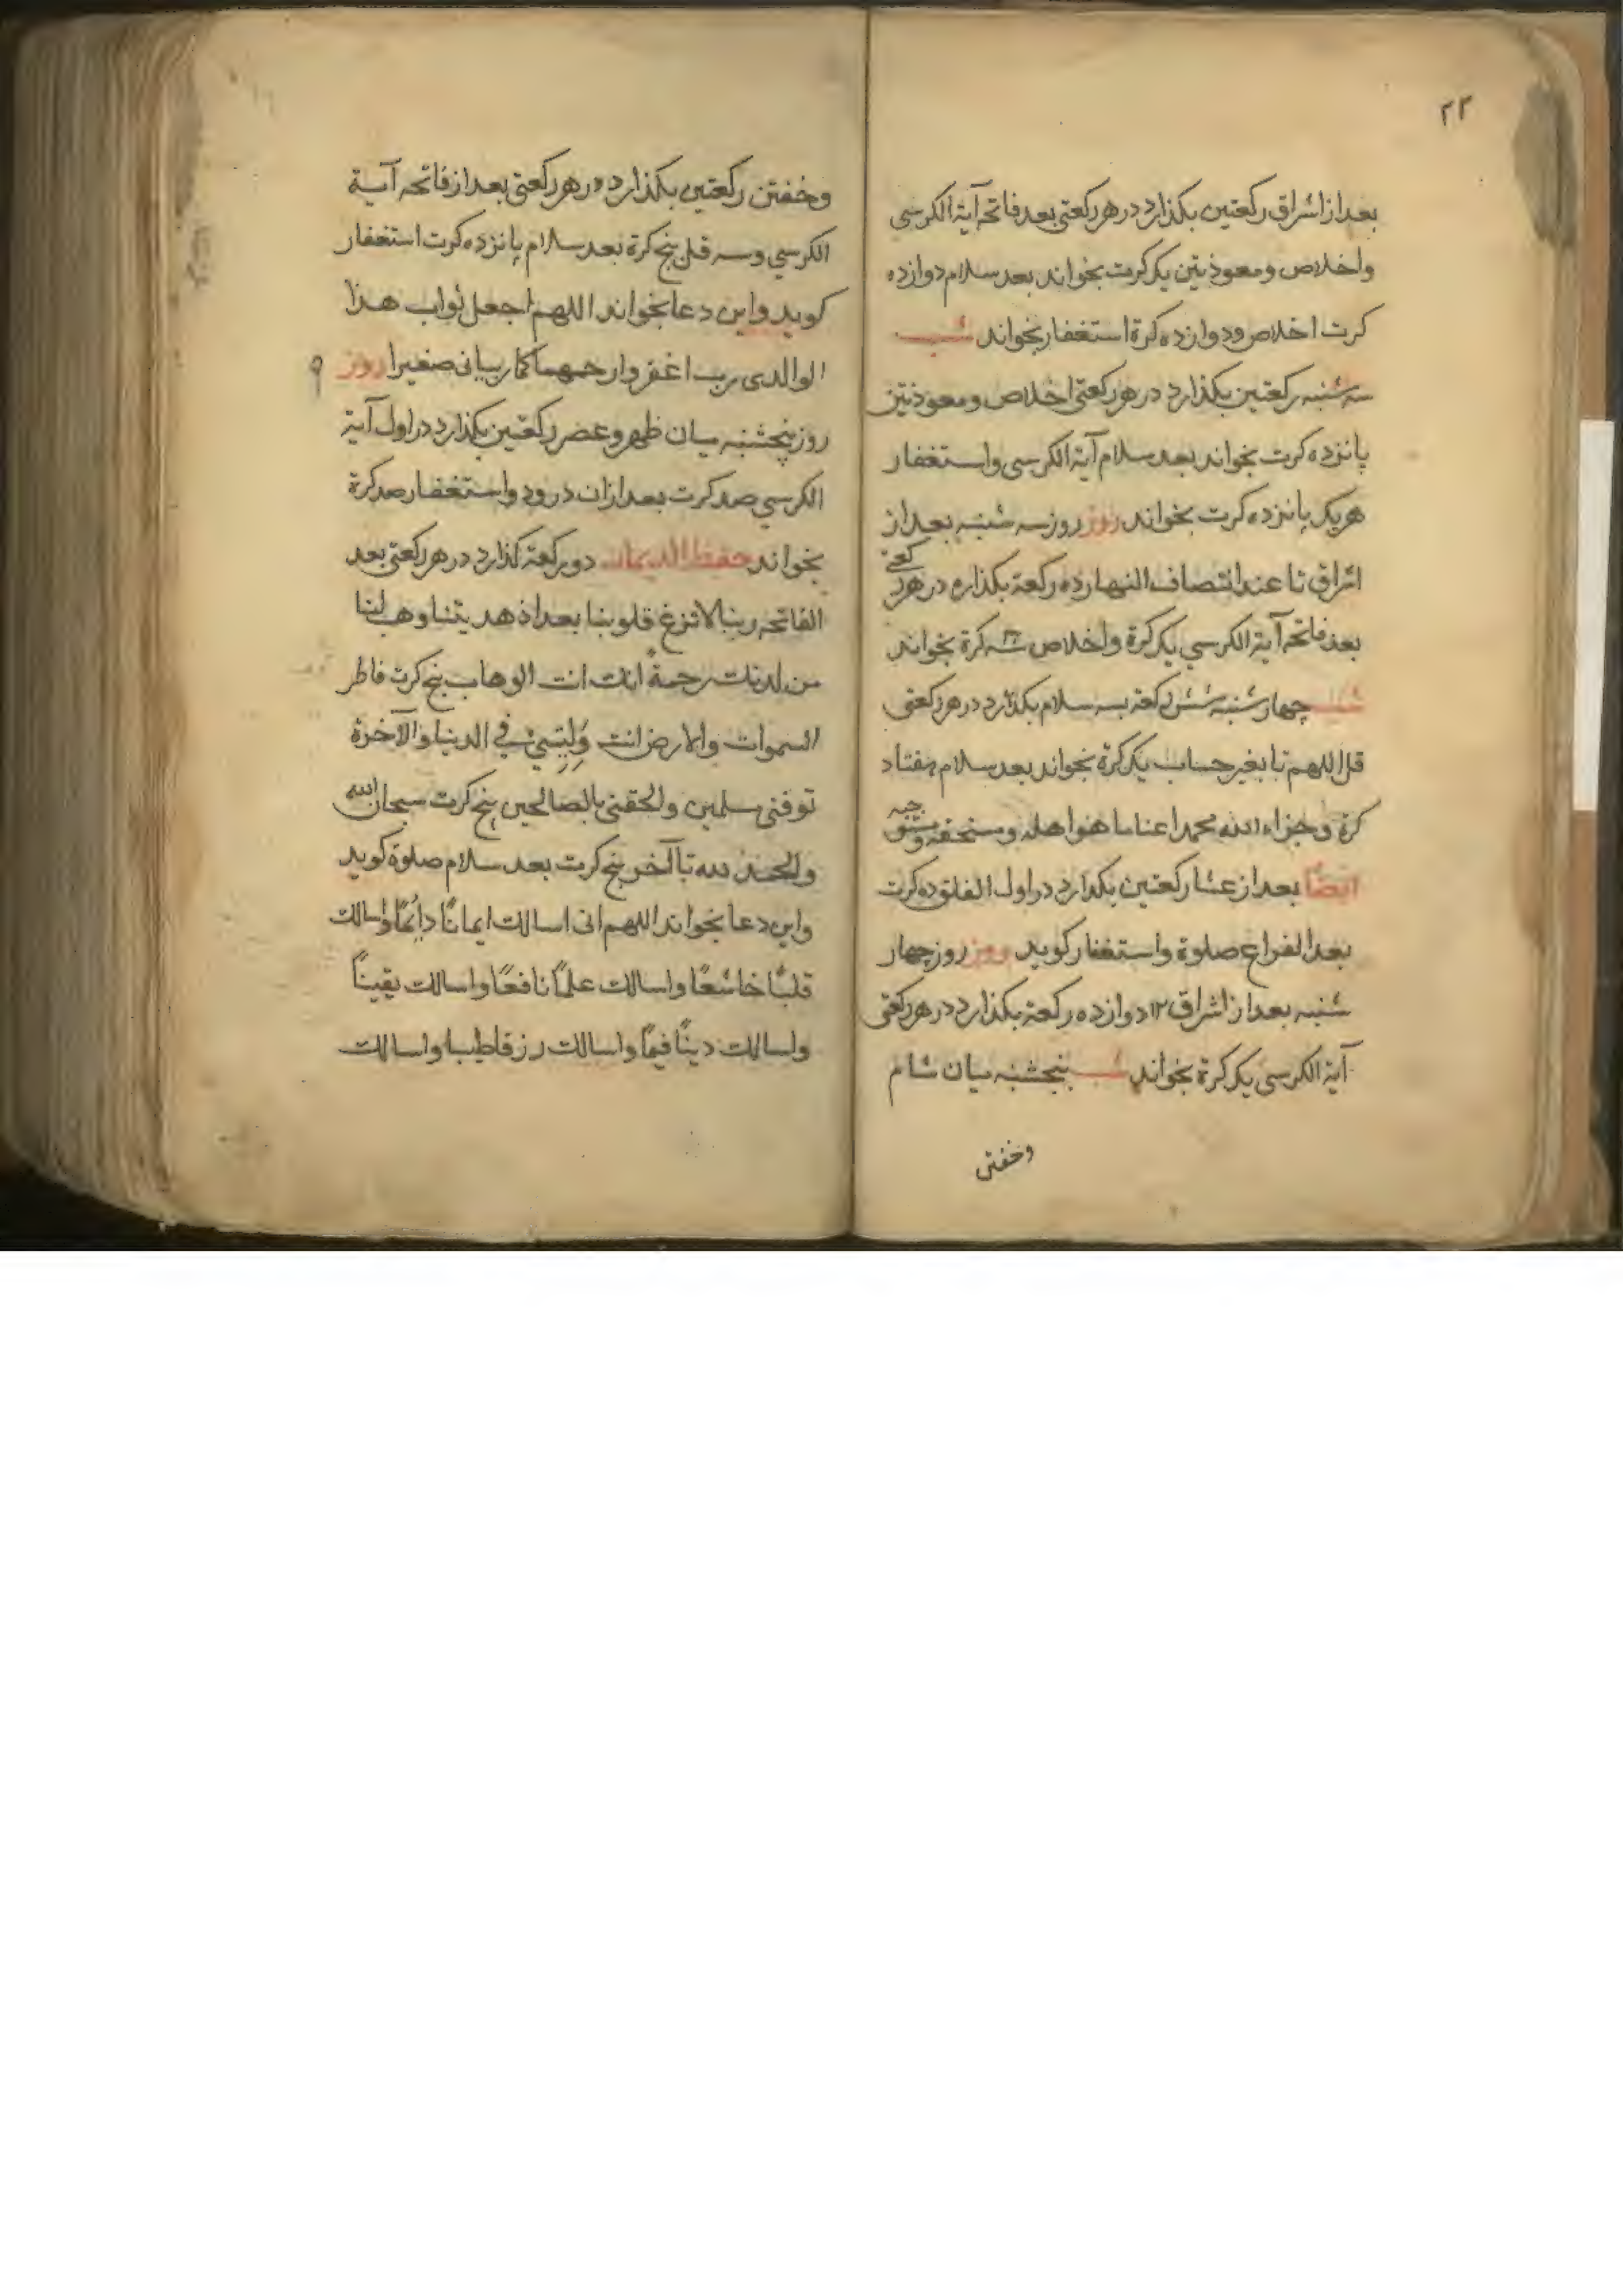 ۲۲
بعد از اشراق ركعتين بكذارد در هر ركعتى بعد فاتحه آية الكرسى
واخلاص ومعوذتين يک كرت بخواند بعد سلام دوازده
كرت اخلاص ودوازده كرة استغفار بخواند شب
سه شنبه ركعتين بكذارد در هر ركعتى اخلاص ومعوذتين
پانزده كرت بخواند بعد سلام آية الكرسى واستغفار
هريک پانزده كرت بخواند روز روز سه شنبه بعد از
اشراق تا عند انتصاف النهار ده ركعة بكذارد در هر ركعتى
بعد فاتحه آية الكرسي يک كرة واخلاص سه كرة بخواند
شب چهارشنبه شش ركعة بسه سلام بكذارد در هر ركعتى
قل اللهم تا بغير حساب يک كرة بخواند بعد سلام هفتاد
كرة وجزاء الله محمدا عنا ما هو اهله ومستحقه
ايضا بعد از عشا ركعتين بكذارد در اول الفلق ده كرت
بعد الفراغ صلوة واستغفار كويد روز روز چهار
شنبه بعد از اشراق ۱۲ دوازده ركعة بكذارد در هر ركعتى
آية الكرسى يک كرة بخواند شب پنجشنبه ميان شام
وخفتن
وخفتن ركعتين بكذارد در هر ركعتى بعد از فاتحه آية
الكرسي وسه قل پنج كرة بعد سلام پانزده كرت استغفار
كويد واين دعا بخواند اللهم اجعل ثواب هذا
لوالدى رب اغفر وارحمهما كما ربيانى صغيرا روز
روز پنجشنبه ميان ظهر وعصر ركعتين بكذارد در اول آية
الكرسي صد كرت بعد ازان درود واستغفار صد كرة
بخواند حفظ الايمان دو ركعة كذارد در هر ركعتى بعد
الفاتحه ربنا لا تزغ قلوبنا بعد اذ هديتنا وهب لنا
من لدنك رحمة انك انت الوهاب پنج كرت فاطر
السموات والارض انت وليى في الدنيا والآخرة
توفنى مسلمين والحقنى بالصالحين پنج كرت سبحان الله
والحمد لله تا آخر پنج كرت بعد سلام صلوة كويد
واين دعا بخواند اللهم انى اسالك ايمانًا دائمًا واسالك
قلبًا خاشعًا واسالك علمًا نافعًا واسالك يقينًا
واسالك دينًا قيمًا واسالك رزقا طيبا واسالك